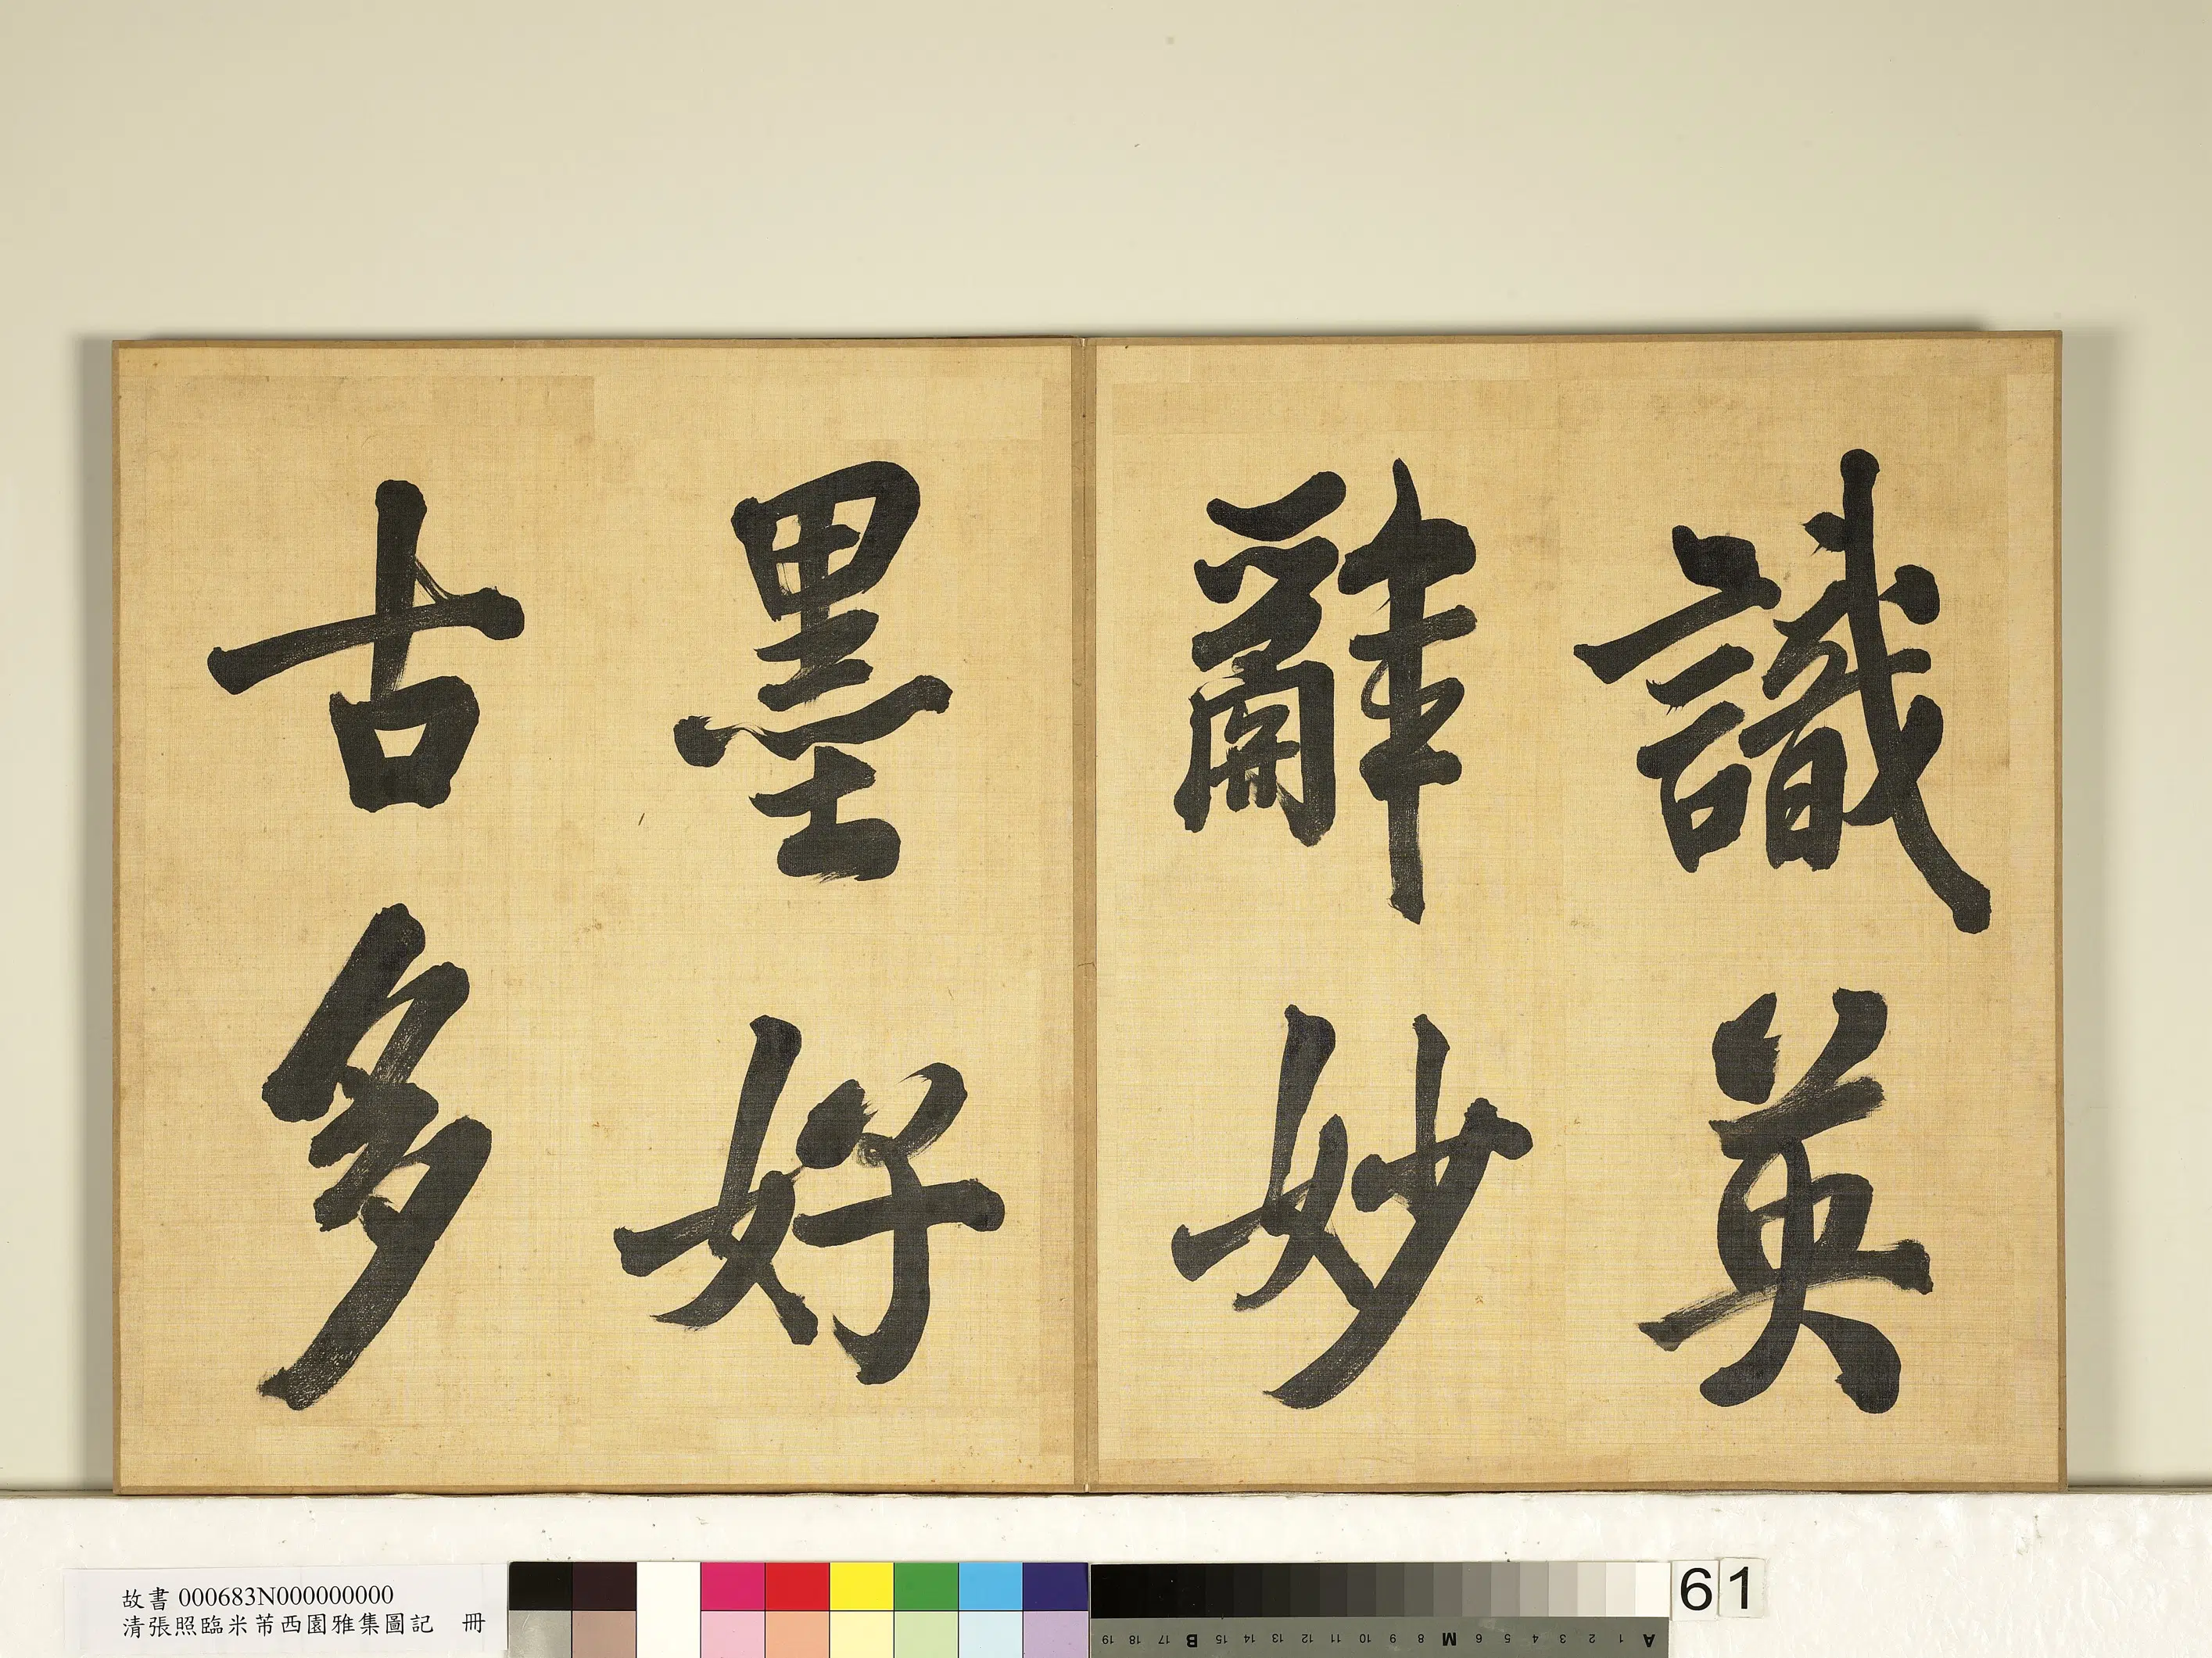 識英
辭妙
墨好
古多
故書 000683N000000000
清張照臨米芾西園雅集圖記 冊
61
A 1 2 3 4 5 6 M 8 9 10 11 12 13 14 15 B 17 18 19